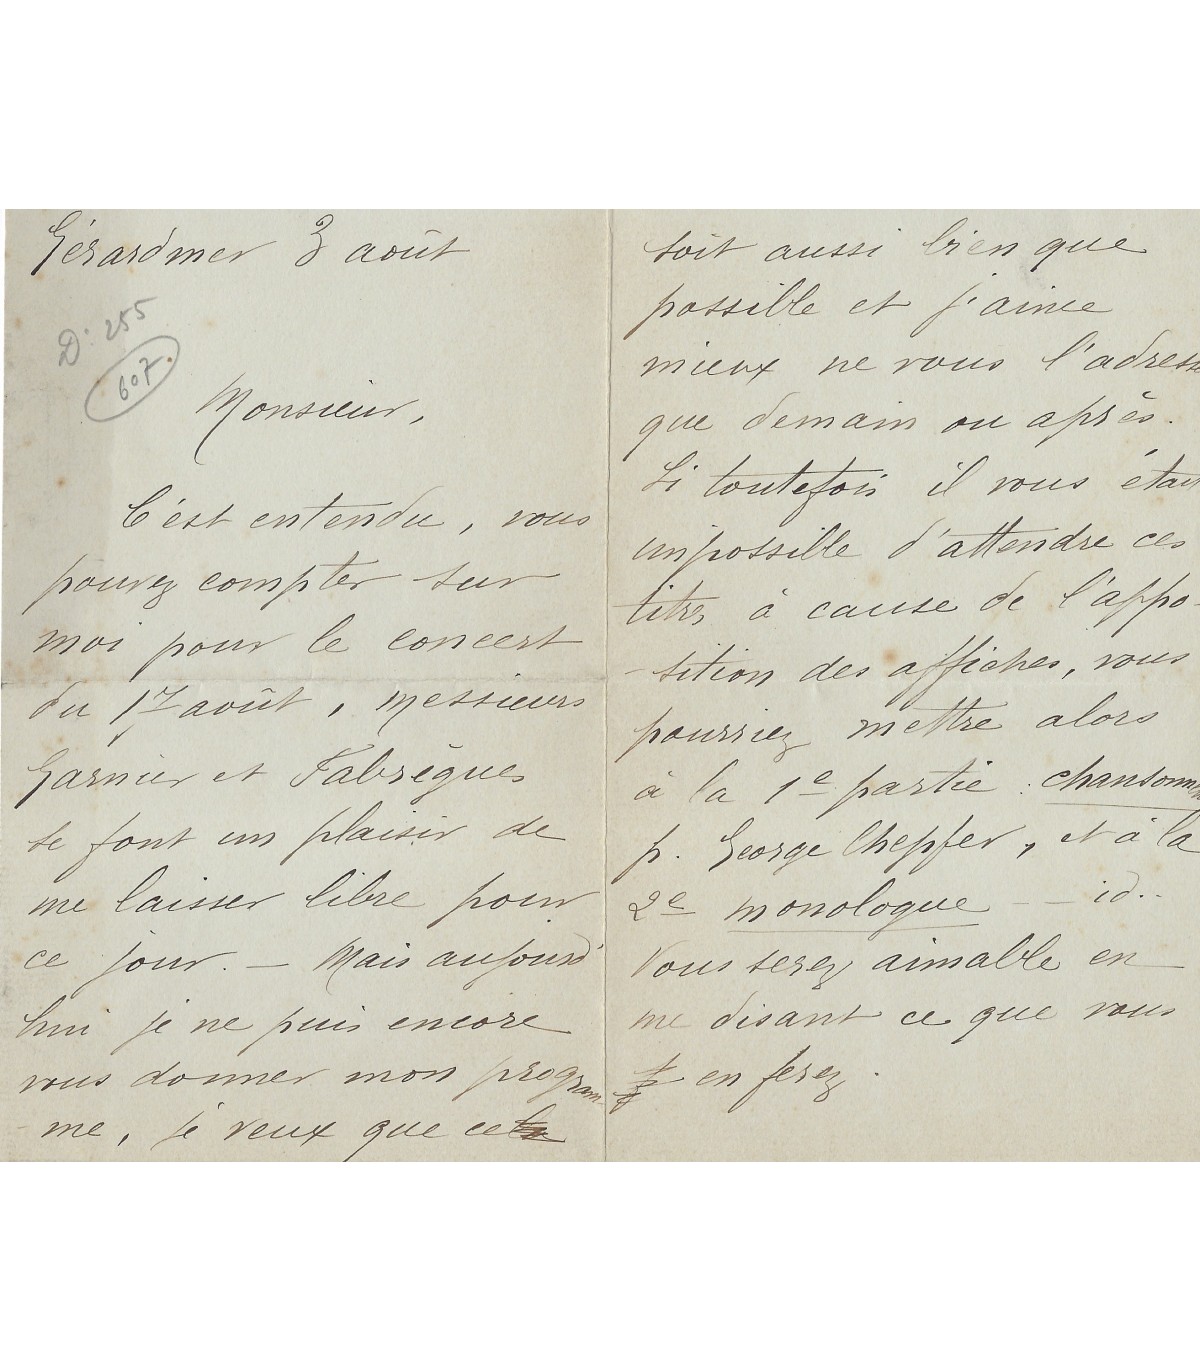 Gérardmer 3 août
D. 255
607.
Monsieur,
C'est entendu, vous
pouvez compter sur
moi pour le concert
du 17 août, messieurs
Garnier et Fabrègues
se font un plaisir de
me laisser libre pour
ce jour. — Mais aujourd'
hui je ne puis encore
vous donner mon program-
me, je veux que ce
soit aussi bien que
possible et j'aime
mieux ne vous l'adresse
que demain ou après.
Si toutefois il vous était
impossible d'attendre ces
titres à cause de l'appo-
-sition des affiches, vous
pourriez mettre alors
à la 1e partie : chansonnet
p. George Chepfer, et à la
2e monologue — — id..
Vous serez aimable en
me disant ce que vous
en ferez.